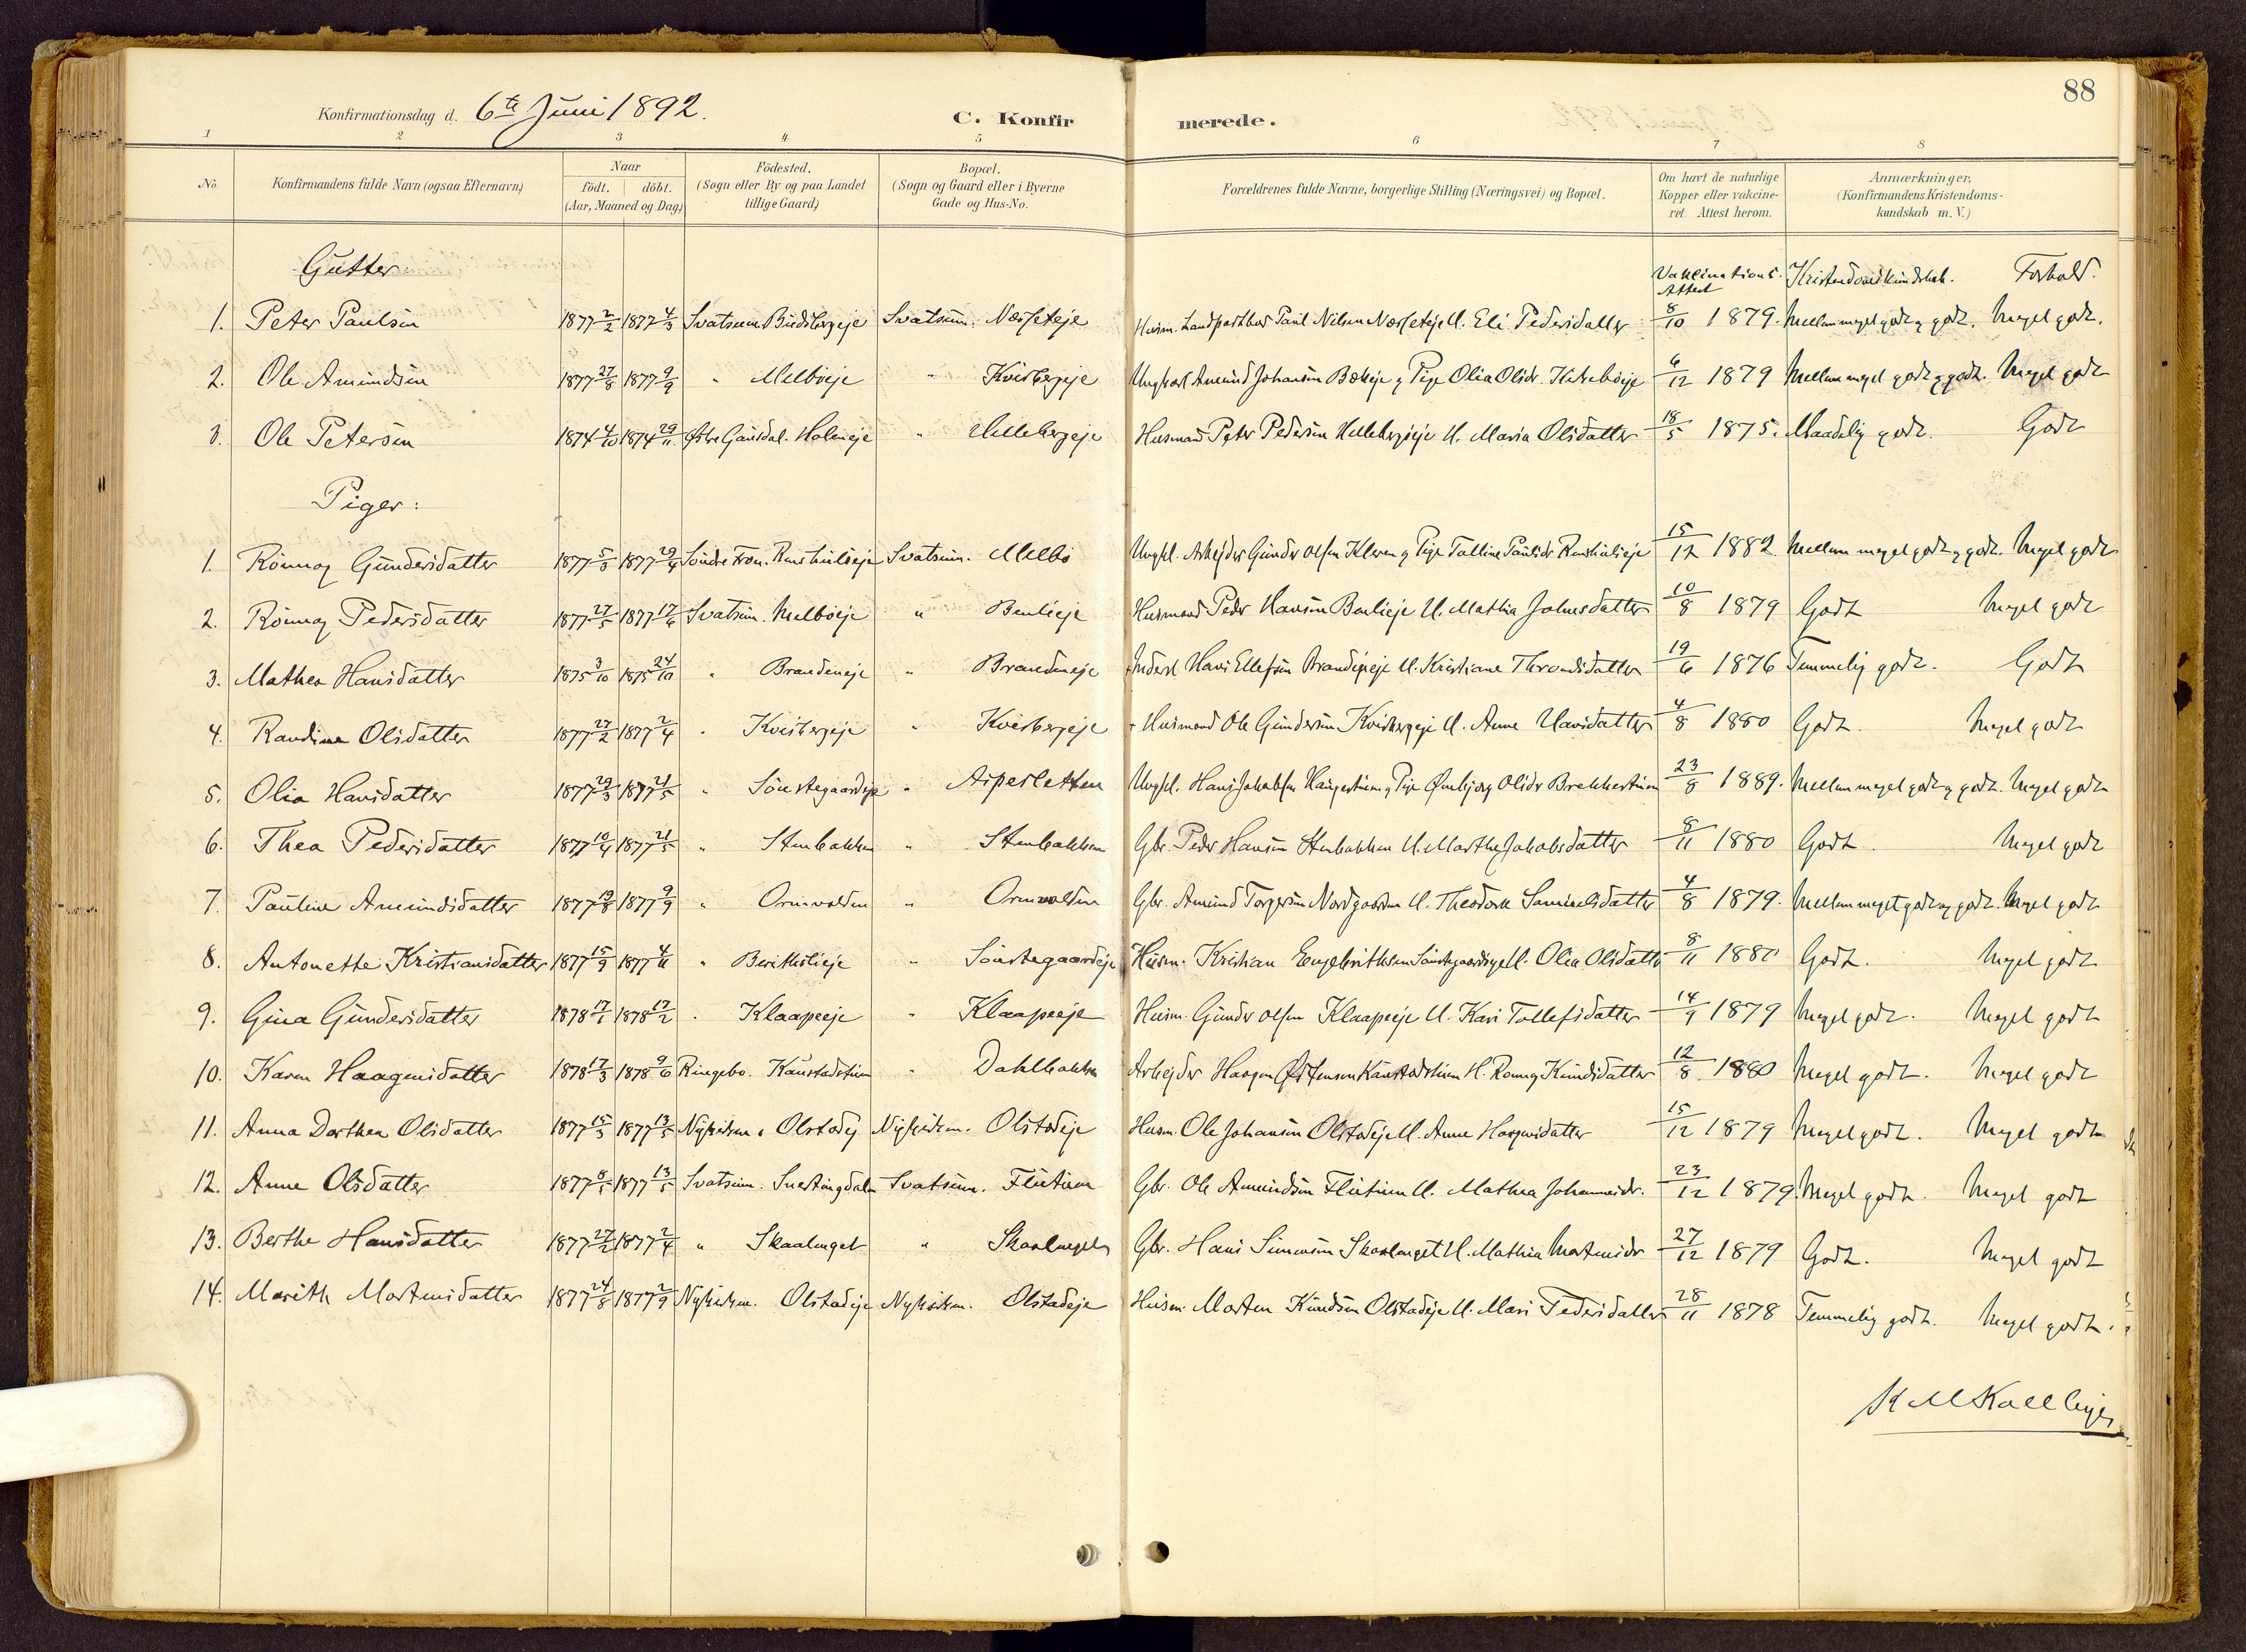 88
Konfirmationsdag d. 6te Juni 1892. C. Konfirmerede.
1 2 3 4 5 6 7 8
No. Konfirmandens fulde Navn (ogsaa Efternavn) Naar födt. döbt. (Aar, Maaned og Dag) Födested. (Sogn eller By og paa Landet tillige Gaard) Bopæl. (Sogn og Gaard eller i Byerne Gade og Hus-No. Forældrenes fulde Navne, borgerlige Stilling (Næringsvei) og Bopæl. Om havt de naturlige Kopper eller vakcineret Attest herom. Anmærkninger, (Konfirmandens Kristendomskundskab m. V.)
Gutter: Vakcinations Attest Kristendomskundskab. Forhold.
1. Peter Paulsen 1877 2/2 1877 4/3 Svatsum Svatsum. Næsseteje Husm. Paul Nilsen Næsseteje H. Eli Pedersdatter 8/10 1879. Mellem meget godt og godt. Meget godt.
2. Ole Amundsen 1877 27/8 1877 9/9 " Melbøeje " Kvisbergeje Ungkarl Amund Johansen Bækeje og Pige Olia Olsdr. 6/12 1879 Mellem meget godt og godt. Meget godt
3. Ole Petersen 1874 4/10 1874 29/11 Østre Gausdal. Holmeje " Hellebergeje Husmand Peter Pedersen Hellebergeje H. Maria Olsdatter 18/5 1875. Maadelig godt. Godt
Piger:
1. Rønnog Gundersdatter 1877 5/3 1877 29/4 Søndre Fron. Svatsum. Melbø Ungkl. Arbejder Gunder Olsen Kleven og Pige 15/12 1882 Mellem meget godt og godt. Meget godt
2. Rønnog Pedersdatter 1877 27/5 1877 17/6 Svatsum. Melbøeje " Benlieje Husmand Peder Hansen Benlieje H. Mathia Johnsdatter 10/8 1879 Godt Meget godt
3. Mathea Hansdatter 1875 3/10 1875 24/10 " Brandeneje " Brandeneje Inderst Hans Ellefsen H. Kristiane Throndsdatter 19/6 1876 Temmelig godt. Godt
4. Randine Olsdatter 1877 27/2 1877 2/4 " Kvisbergeje " Kvisbergeje Husmand Ole Gundersen Kvisbergeje H. Anne Hansdatter 4/8 1880 Godt. Meget godt
5. Olia Hansdatter 1877 29/3 1877 21/5 " Sønstegaardeje " Aspesletten Ungkl. Hans Jakobsen og Pige Olsdr 23/8 1889. Mellem meget godt og godt. Meget godt
6. Thea Pedersdatter 1877 10/4 1877 21/5 " Stenbakken " Stenbakken Gbr. Peder Hansen Stenbakken H. Marthe Jakobsdatter 8/11 1880 Godt. Meget godt
7. Pauline Amundsdatter 1877 19/8 1877 9/9 " Ormvolden " Ormvolden Gbr. Amund Torgersen Nordgaarden H. Samuelsdatter 4/8 1879. Mellem meget godt og godt. Meget godt
8. Antonette Kristiansdatter 1877 15/9 1877 4/11 " " Sønstegaardeje Husm. Kristian Engebrethsen Sønstegaardeje H. Olea Olsdatter 8/11 1880 Godt. Meget godt
9. Gina Gundersdatter 1878 17/1 1878 17/2 " Klaapeeje " Klaapeeje Husm. Gunder Olsen Klaapeeje H. Kari Tollefsdatter 14/9 1879 Meget godt. Meget godt
10. Karen Haagensdatter 1878 17/3 1878 9/6 Ringebo. Kanstadstuen " Dahlbakken Arbejder Haagen Østensen Kanstadstuen H. Ronnog Knudsdatter 12/8 1880 Meget godt. Meget godt
11. Anna Dorthea Olsdatter 1877 15/3 1877 13/5 Nykirken. Olstadej Nykirken. Olstadeje Husm. Ole Johansen Olstadeje H. Anne Haagensdatter 15/12 1879 Meget godt. Meget godt
12. Anne Olsdatter 1877 8/5 1877 13/5 Svatsum. Svatsum. Flutuen Gbr. Ole Amundsen Flutuen H. Mathea Johannesdr. 23/12 1879. Meget godt. Meget godt
13. Berthe Hansdatter 1877 27/2 1877 2/4 " Skaalenget " Skaalenget Gbr. Hans Simensen Skaalenget H. Mathia Mortensdr 27/12 1879 Godt. Meget godt
14. Marith Mortensdatter 1877 24/8 1877 2/9 Nykirken. Olstadeje Nykirken. Olstadeje Husm. Morten Knudsen Olstadeje H. Mari Pedersdatter 28/11 1878 Temmelig godt. Meget godt.